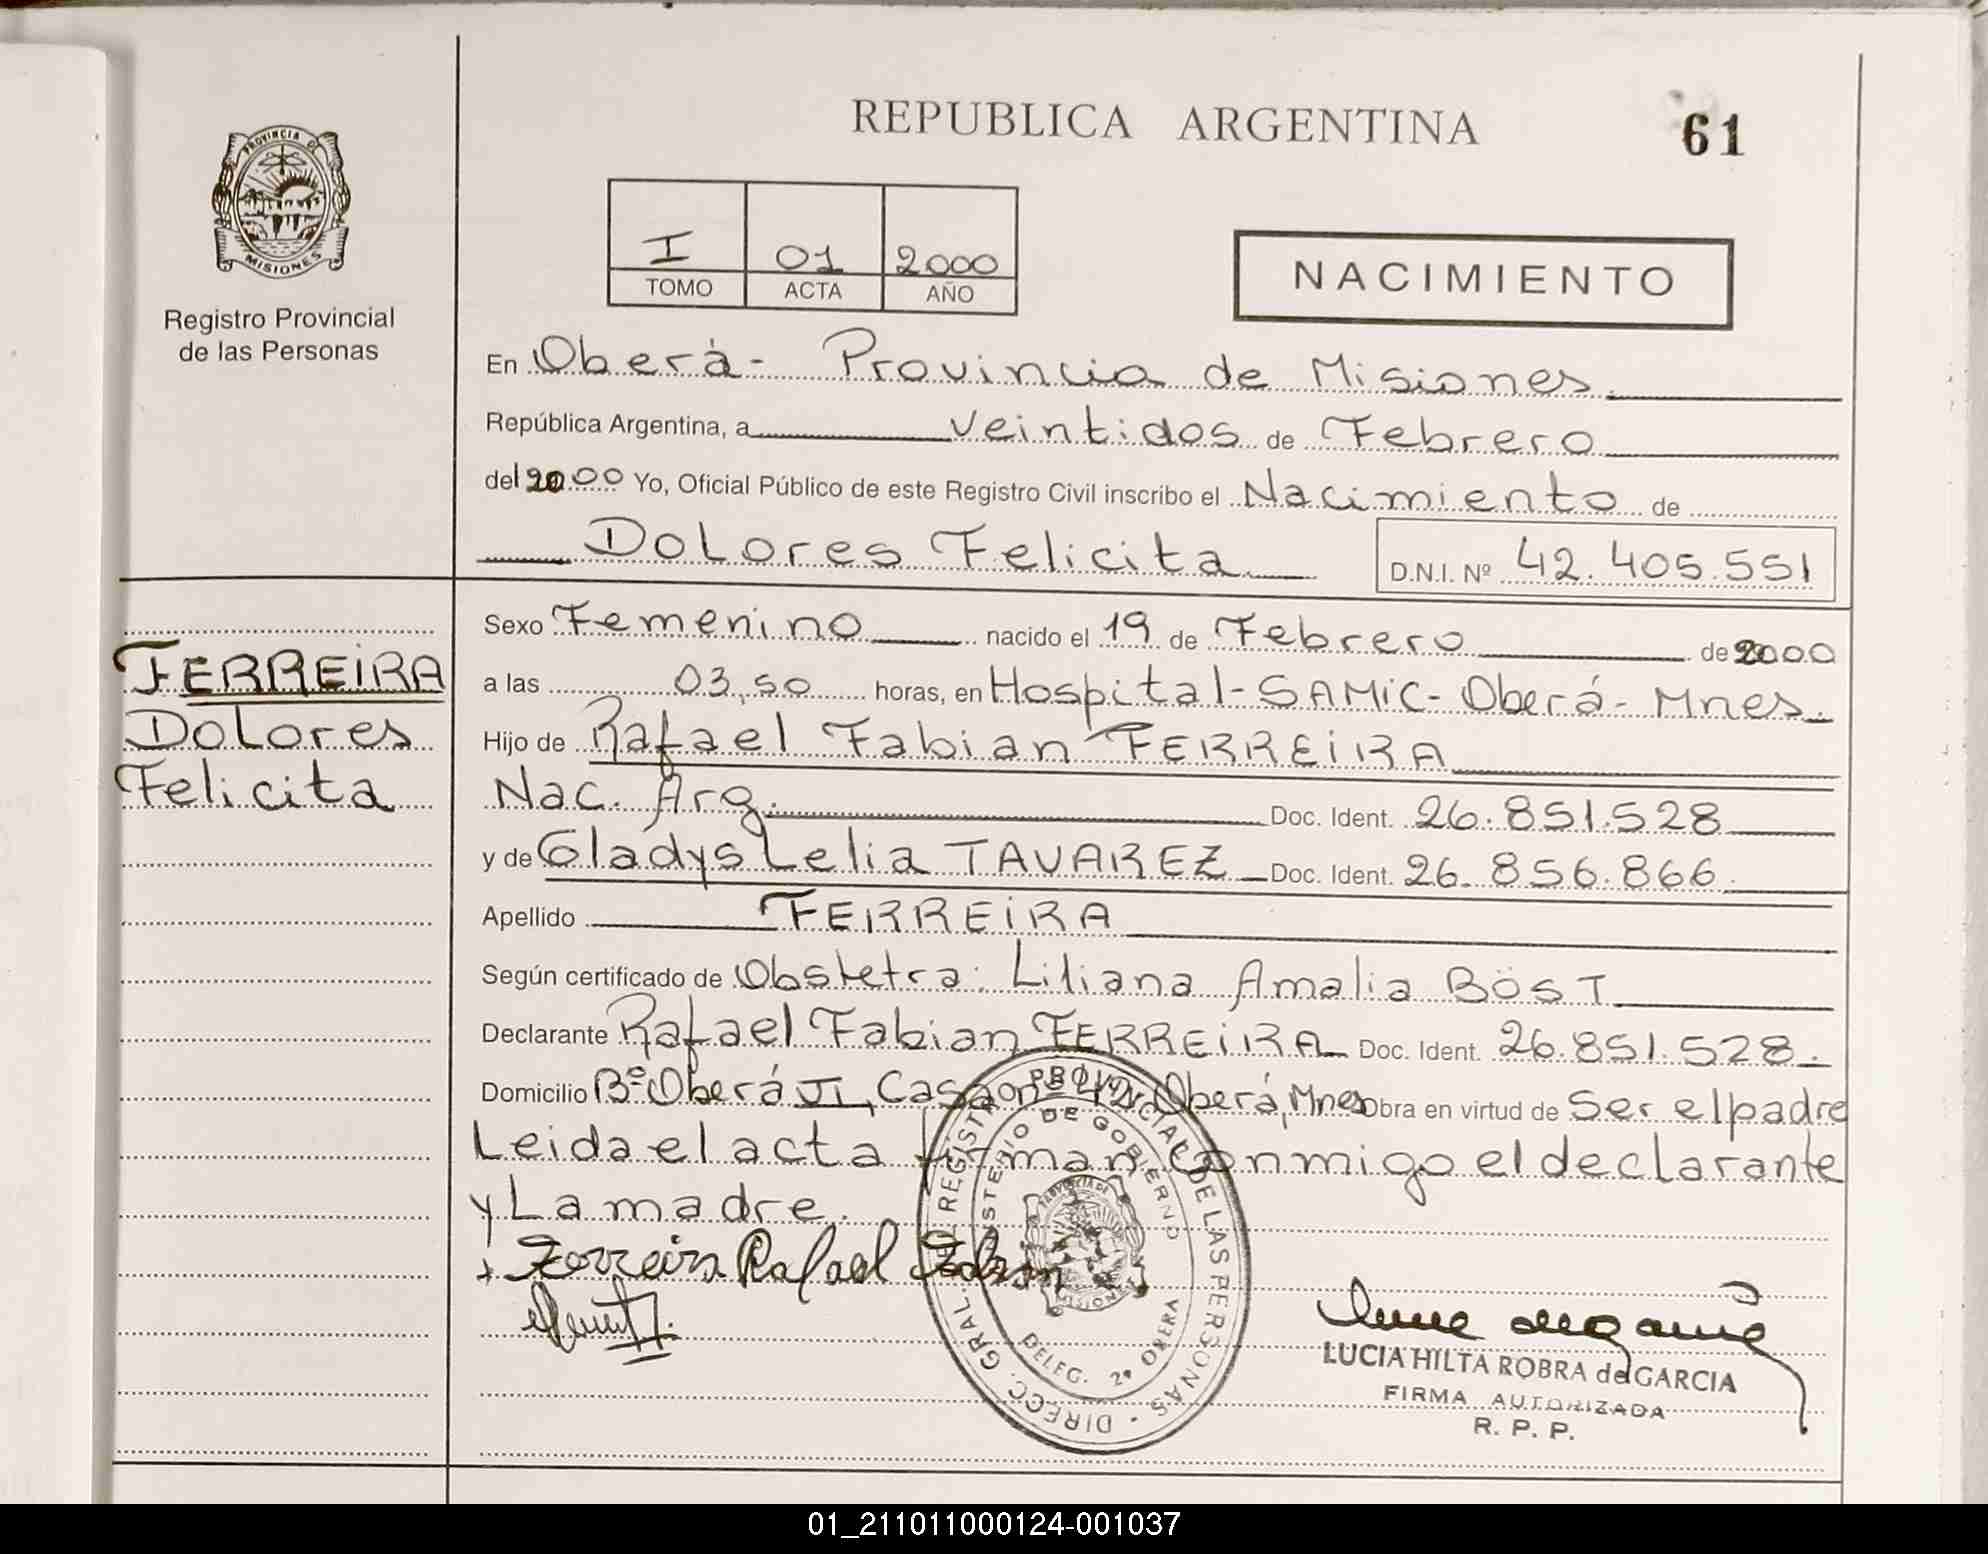 REPUBLICA ARGENTINA
61
PROVINCIA DE
MISIONES
Registro Provincial
de las Personas
I 01 2000
TOMO ACTA AÑO
NACIMIENTO
En Oberá - Provincia de Misiones
República Argentina, a veintidos de Febrero
del 2000 Yo, Oficial Público de este Registro Civil inscribo el Nacimiento de
Dolores Felicita D.N.I. Nº 42.405.551
FERREIRA
Dolores
Felicita
Sexo Femenino nacido el 19 de Febrero de 2000
a las 03,50 horas, en Hospital - SAMIC - Oberá - Mnes.
Hijo de Rafael Fabian FERREIRA
Nac. Arg. Doc. Ident. 26.851.528
y de Gladys Lelia TAVAREZ Doc. Ident. 26.856.866
Apellido FERREIRA
Según certificado de Obstetra: Liliana Amalia BÖST
Declarante Rafael Fabian FERREIRA Doc. Ident. 26.851.528.
Domicilio Bº Oberá VI, Casa nº Oberá, Mnes Obra en virtud de Ser el padre
Leida el acta firman conmigo el declarante
y La madre.
Ferreira Rafael Fabian
DIRECC. GRAL. REGISTRO PROVINCIAL DE LAS PERSONAS
MINISTERIO DE GOBIERNO
PROVINCIA DE
MISIONES
DELEG. 2ª OBERA
LUCIA HILTA ROBRA de GARCIA
FIRMA AUTORIZADA
R. P. P.
01_211011000124-001037